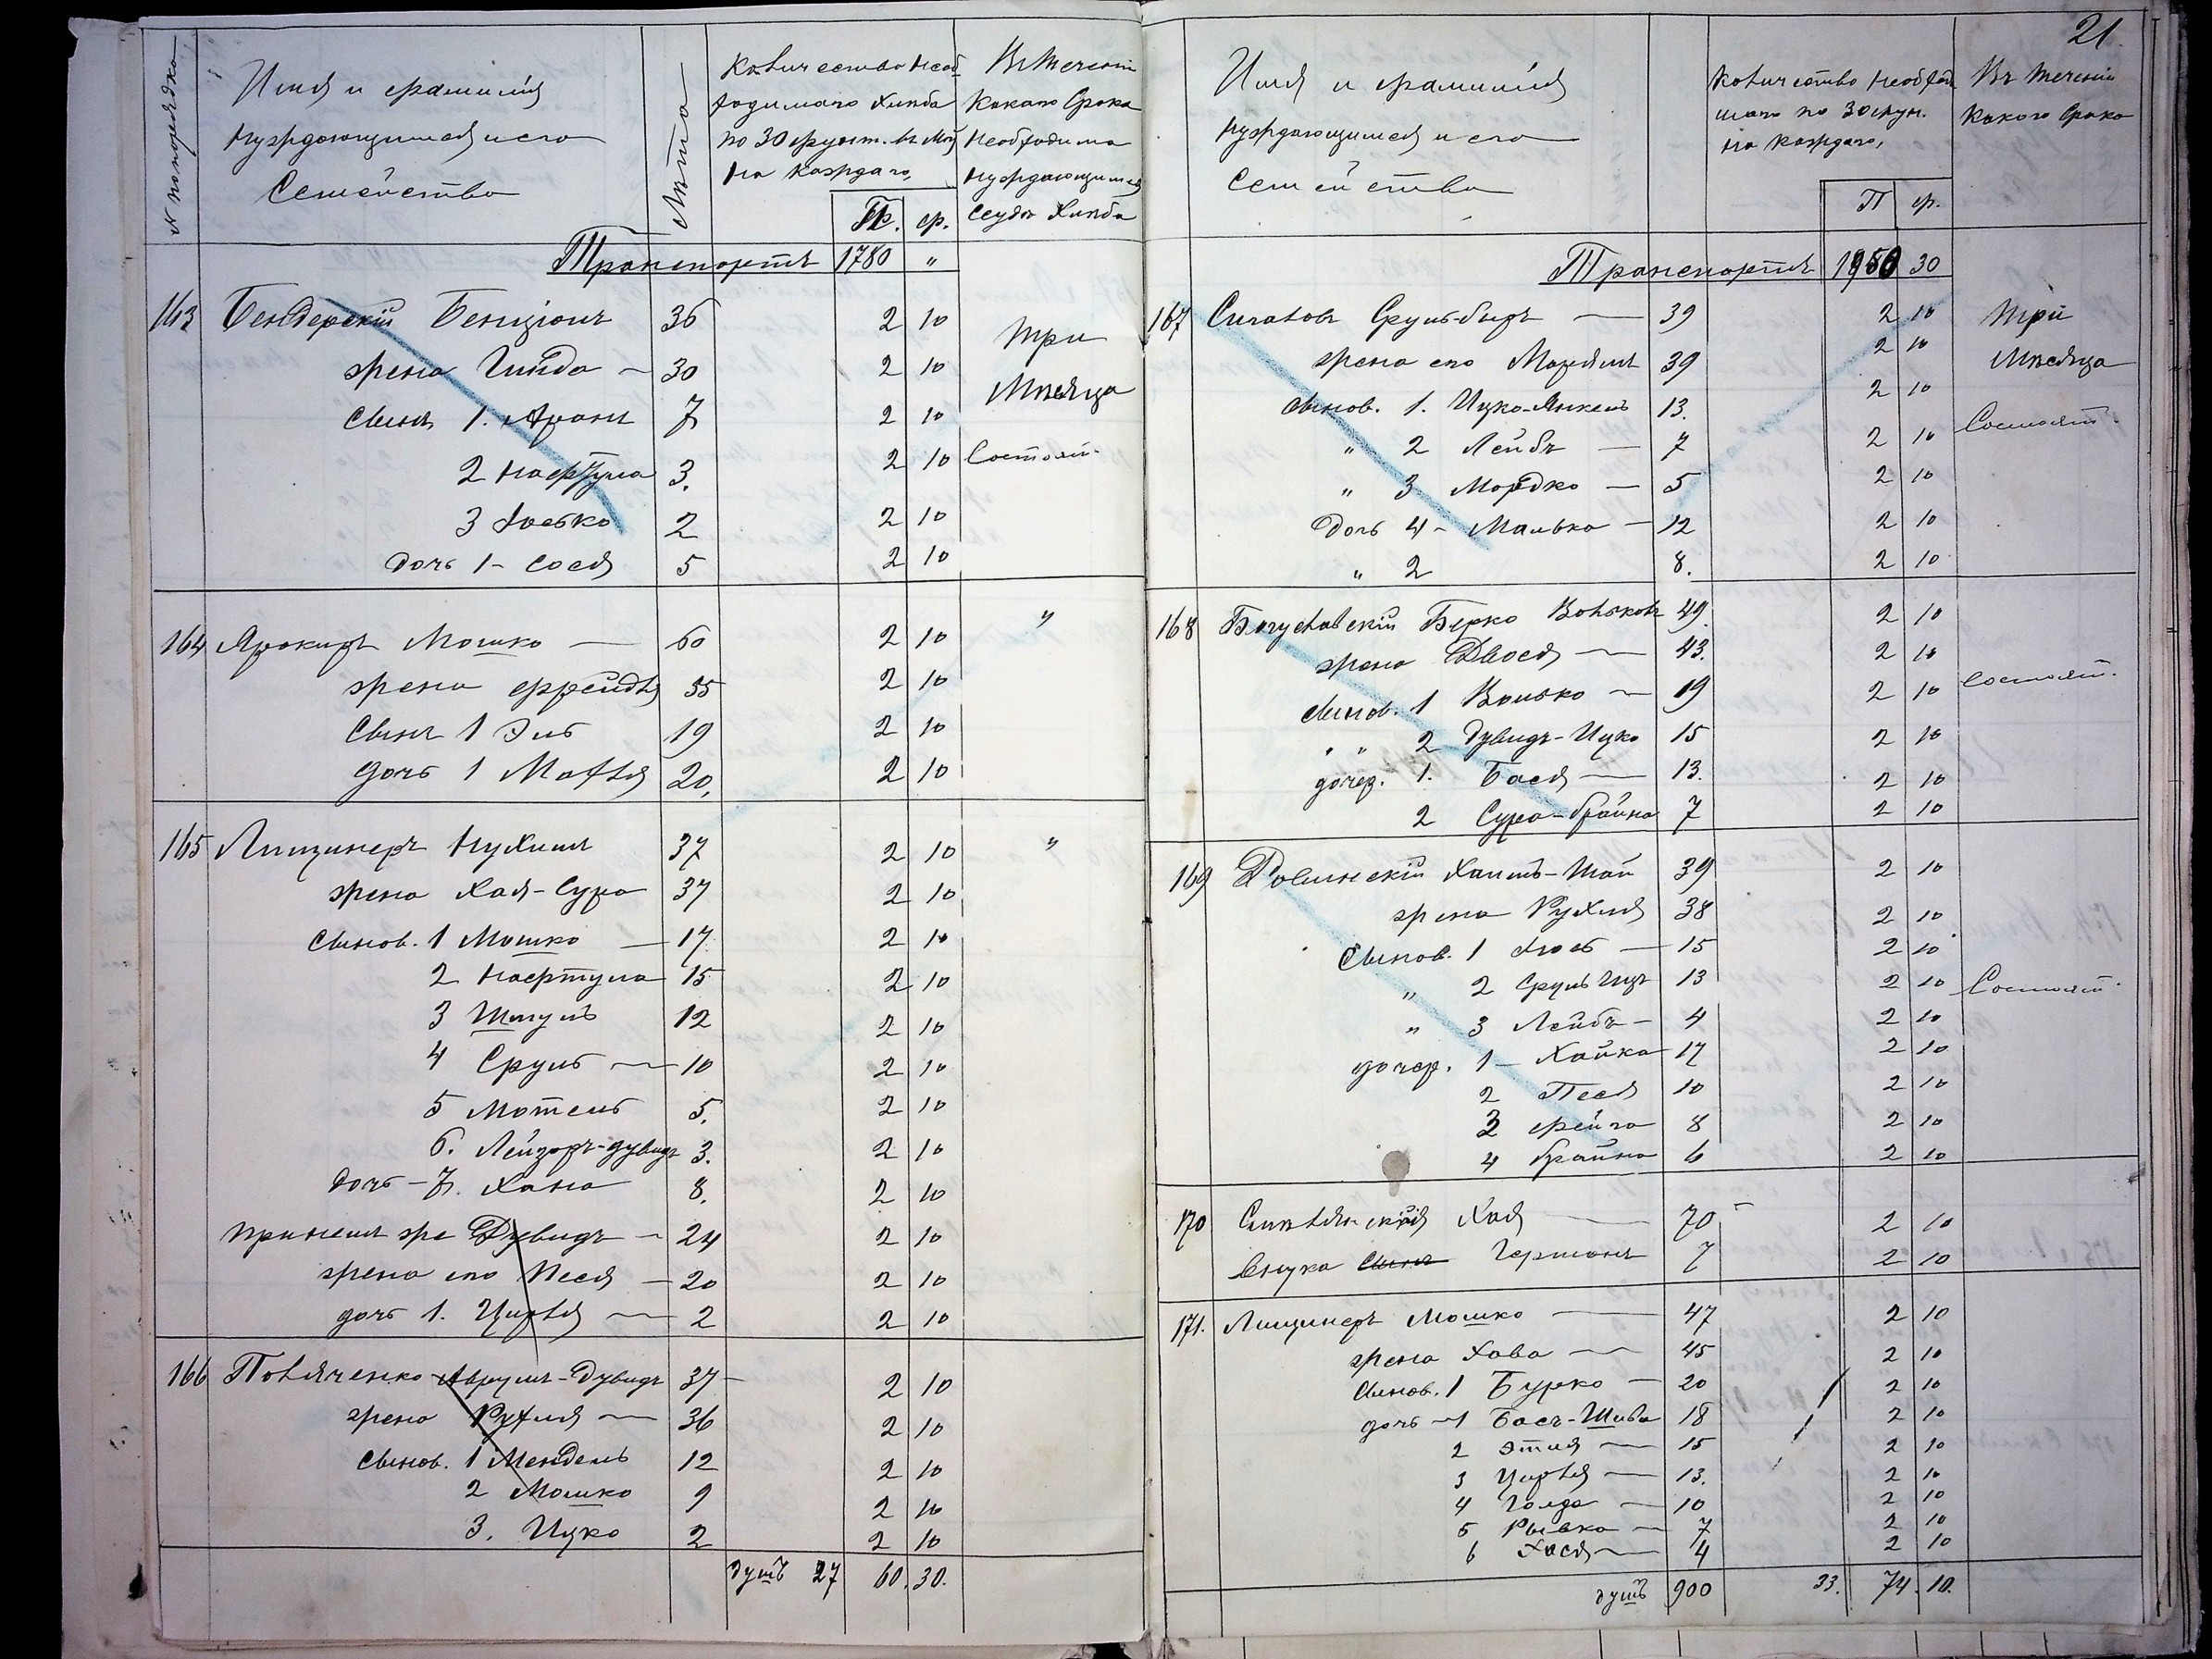 № по порядку
Имя и фамилія
нуждающимся и его
Семейство
Лѣта
Количество необ-
ходимаго хлѣба
по 30 фунт. въ мѣс.
на каждаго,
П. ф.
Въ теченіи
какаго срока
необходимо
нуждающимся
ссуда хлѣба
Транспортъ 1780 "
163 Бендерскій Бенціонъ 36 2 10 три
жена Гинда — 30 2 10 Мѣсяца
сынъ 1. Аронъ 7 2 10
2 Нафтула 3. 2 10 Состоят.
3 Іосько 2 2 10
дочь 1 - Сося 5 2 10
164 Мошко — 60 2 10 "
жена Фрейда 55 2 10
Сынъ 1 Эль 19 2 10
дочь 1 Махля 20, 2 10
165 Лищинеръ Нухимъ 37 2 10 "
жена Хая-Сура 37 2 10
сынов. 1 Мошко — 17 2 10
2 Нафтула 15 2 10
3 Шмуль 12 2 10
4 Сруль — 10 2 10
5 Мотель 5. 2 10
6. Лейзоръ-Дувидъ 3. 2 10
дочь - 7. Хана 8. 2 10
Дувидъ — 24 2 10
жена его Песя — 20 2 10
дочь 1. Цирля — 2 2 10
166 Поляченко Аврумъ-Дувидъ 37 — 2 10
жена Рухля — 36 2 10
сынов. 1 Мендель 12 2 10
2 Мошко 9 2 10
3. Ицко 2 2 10
душъ 27 60. 30.
21.
Имя и фамилія
нуждающимся и его
Семейства
Количество необход
маго по 30 фун.
на каждаго,
П ф.
Въ теченіи
какого срока
Транспортъ 1950 30
167 Сруль-Бэръ — 39 2 10 три
жена его Маріямъ 39 2 10 Мѣсяца
сынов. 1. Ицко-Янкель 13. 2 10
" 2 Лейбъ — 7 2 10 Состоят.
" 3 Мордко — 5 2 10
дочь 4 - Малька — 12 2 10
" 2 8. 2 10
168 Богуславскій Берко Вольковъ 49. 2 10
жена Двося — 43. 2 10
сынов. 1 Волько — 19 2 10 состоят.
" " 2 Дувидъ-Ицко 15 2 10
дочер. 1. Бася — 13. 2 10
2 Сура-Брайна 7 2 10
169 Ровинскій Хаимъ-Шай 39 2 10
жена Рухля 38 2 10
Сынов. 1 Іось — 15 2 10
" 2 Сруль Ицъ 13 2 10 Состоят.
" 3 Лейбъ — 4 2 10
дочер. 1 — Хайка 17 2 10
2 Песя 10 2 10
3 Фейга 8 2 10
4 Брайна 6 2 10
170 Хая — 70 — 2 10
Внука сынъ Гершонъ 7 2 10
171. Лищинеръ Мошко — 47 2 10
жена Хава — 45 2 10
сынов. 1 Бурко — 20 2 10
дочь — 1 Бась-Шива 18 2 10
2 Этля — 15 2 10
3 Цирля — 13. 2 10
4 Голда — 10 2 10
5 Рывка — 7 2 10
6 Хася — 4 2 10
душъ 900 33. 74. 10.